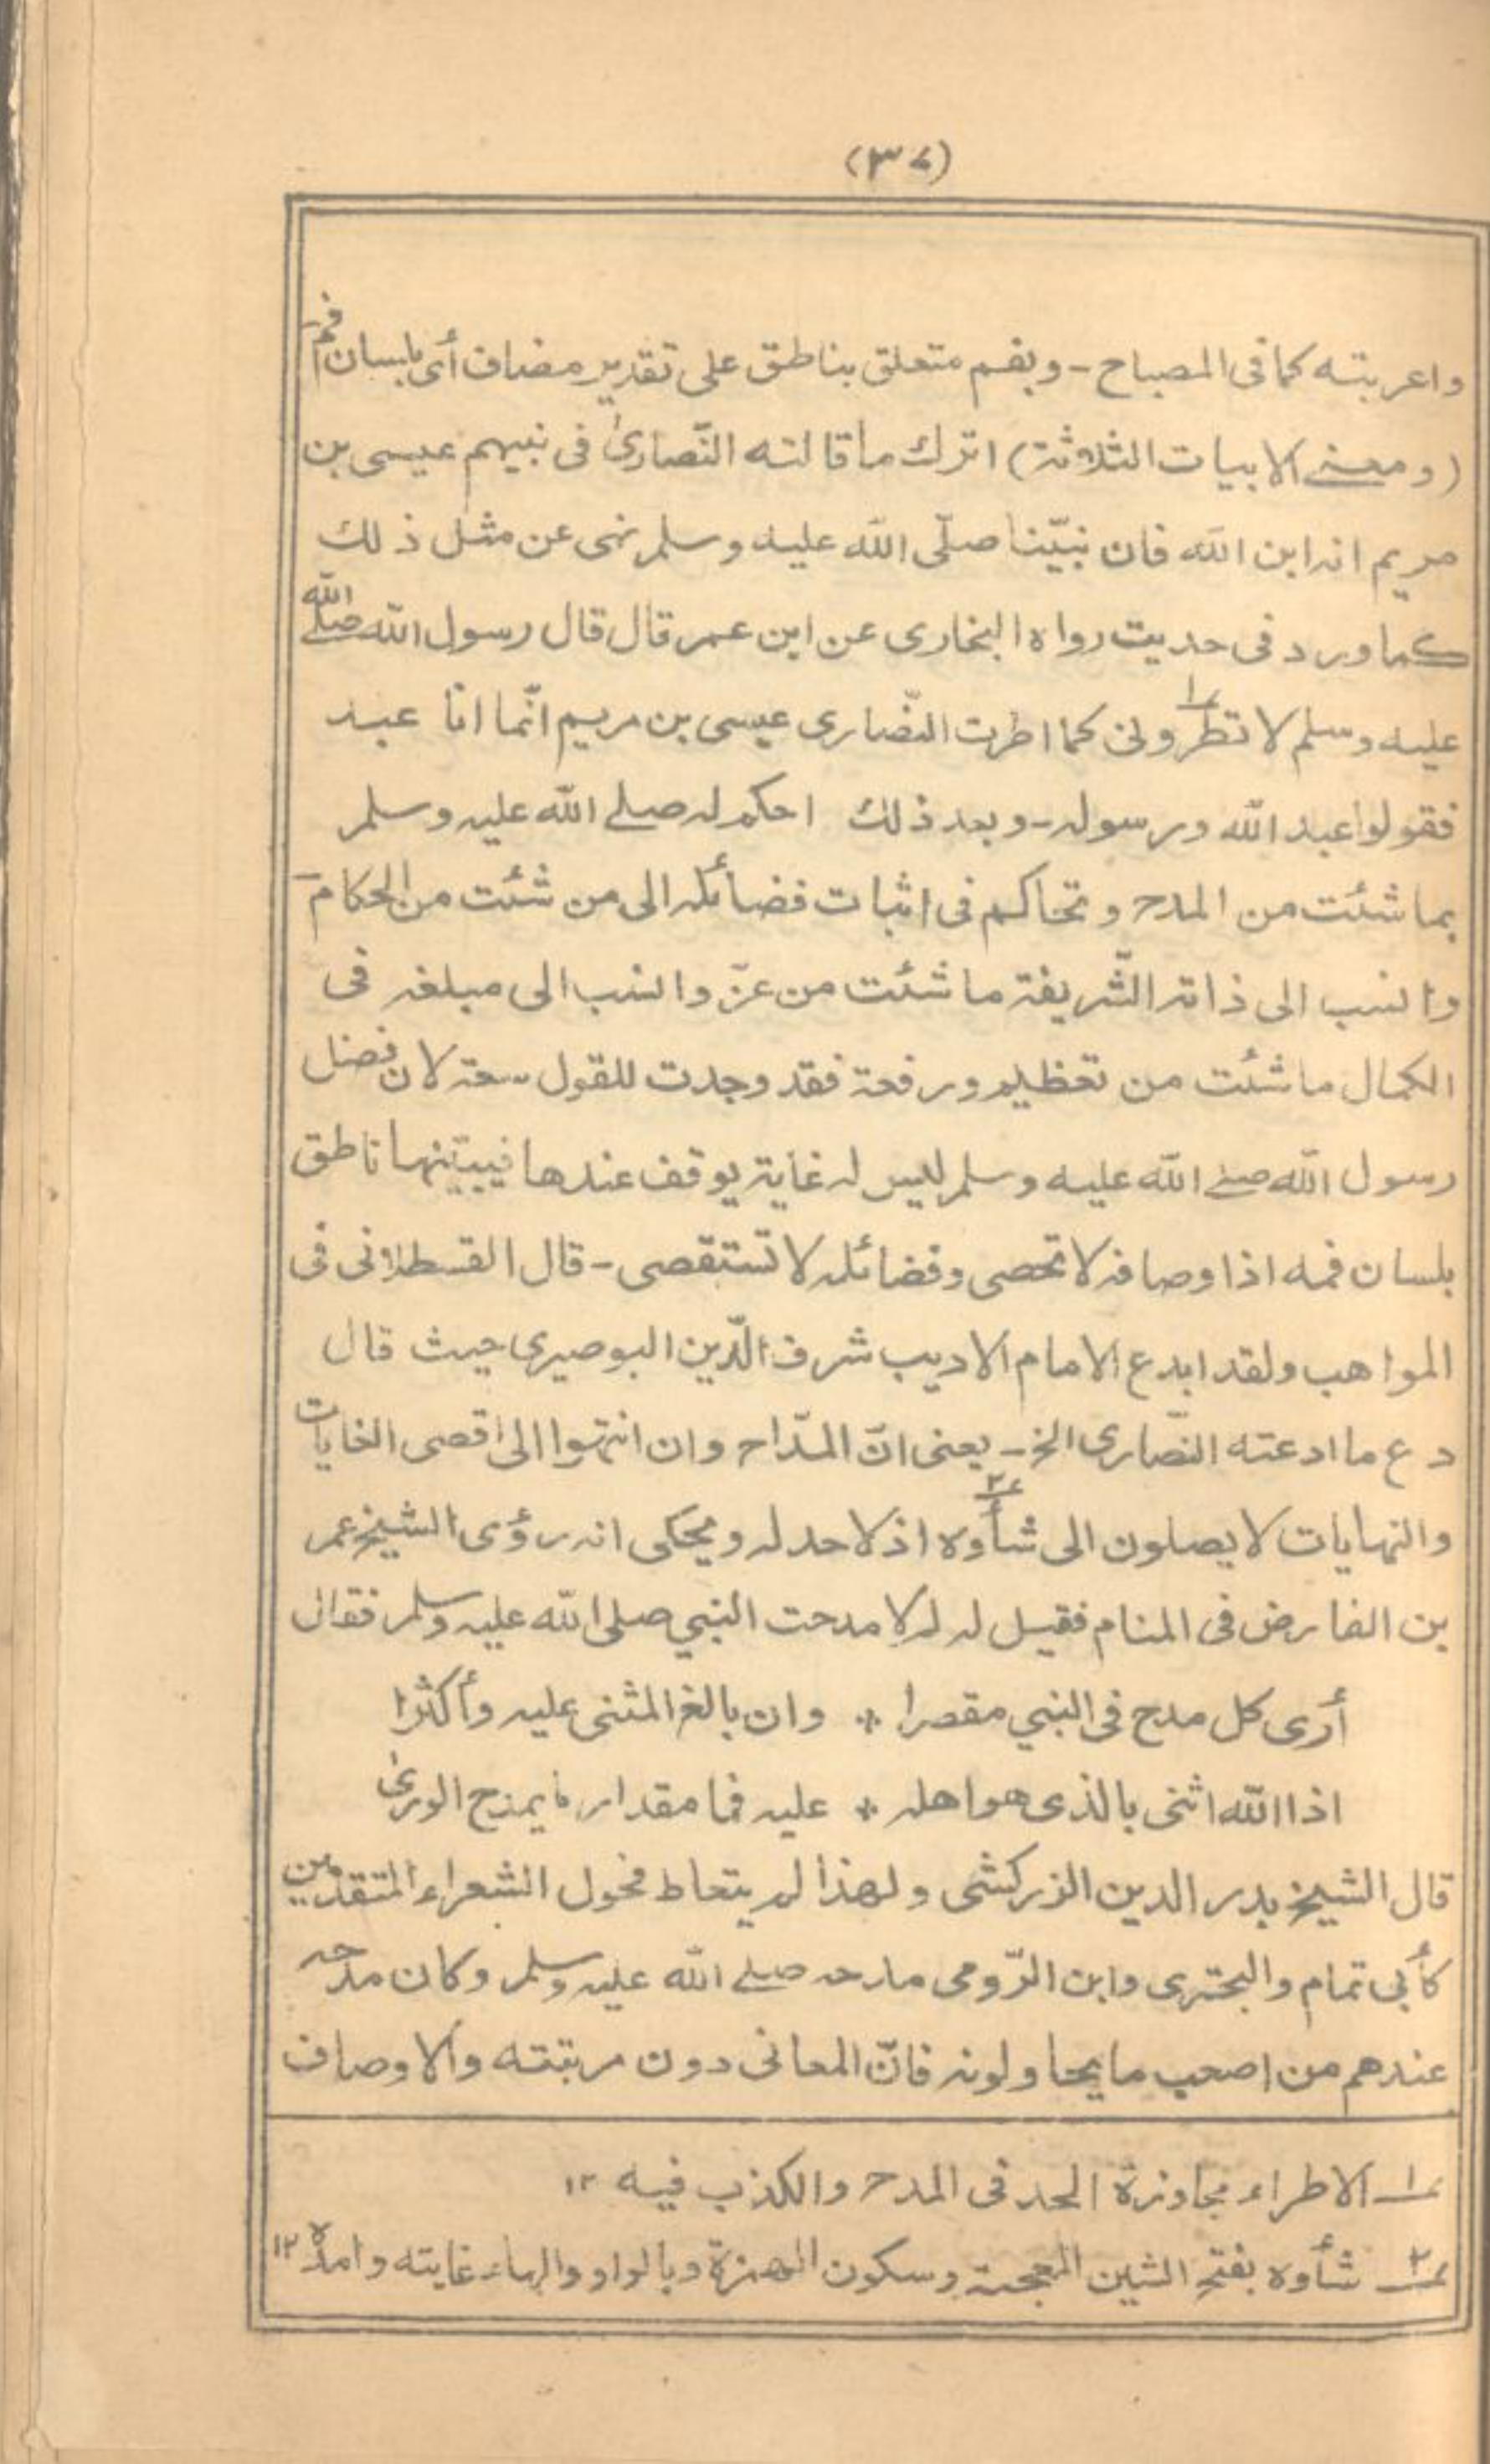 (٣٧)
واعربته كما فى المصباح - وبفم متعلق بناطق على تقدير مضاف أى بلسان فم
(ومعنے الابيات الثلاثة) اترك ما قالته النّصارىٰ فى نبيهم عيسى بن
مريم انه ابن الله فان نبيّنا صلّى الله عليه وسلم نهى عن مثل ذلك
كما ورد فى حديث رواه البخارى عن ابن عمر قال قال رسول الله صلے الله
عليه وسلم لا تطرونى كما اطرت النّصارى عيسى بن مريم انّما انا عبد
فقولوا عبد الله ورسوله - وبعد ذلك احكم له صلے الله عليه وسلم
بما شئت من المدح وتحاكم فى اثبات فضائله الى من شئت من الحكام
وانسب الى ذاته الشّريفة ما شئت من عزّ وانسب الى مبلغه فى
الكمال ما شئت من تعظيم ورفعة فقد وجدت للقول سعة لان فضل
رسول الله صلے الله عليه وسلم ليس له غاية يوقف عندها فيبيّنها ناطق
بلسان فمه اذ اوصافه لا تحصى وفضائله لا تستقصى - قال القسطلانى فى
المواهب ولقد ابدع الامام الاديب شرف الدّين البوصيرى حيث قال
دع ما ادعته النّصارى الخ - يعنى انّ المدّاح وان انتهوا الى اقصى الغايات
والنهايات لا يصلون الى شأوه اذ لا حد له ويحكى انه رؤى الشيخ عمر
بن الفارض فى المنام فقيل له لم لا مدحت النبي صلى الله عليه وسلم فقال
أرى كل مدح فى النبي مقصرا * وان بالغ المثنى عليه وأكثرا
اذا الله اثنى بالذى هو اهله * عليه فما مقدار ما يمدح الورىٰ
قال الشيخ بدر الدين الزركشى ولهذا لم يتعاط فحول الشعراء المتقدمين
كأبى تمام والبحترى وابن الرّومى مدحه صلے الله عليه وسلم وكان مدحه
عندهم من اصعب ما يحاولونه فانّ المعانى دون مرتبته والاوصاف
١ الاطراء مجاوزة الحد فى المدح والكذب فيه ١٢
٢ شأوه بفتح الشين المعجمة وسكون الهمزة وبالواو والهاء غايته وامده ١٢